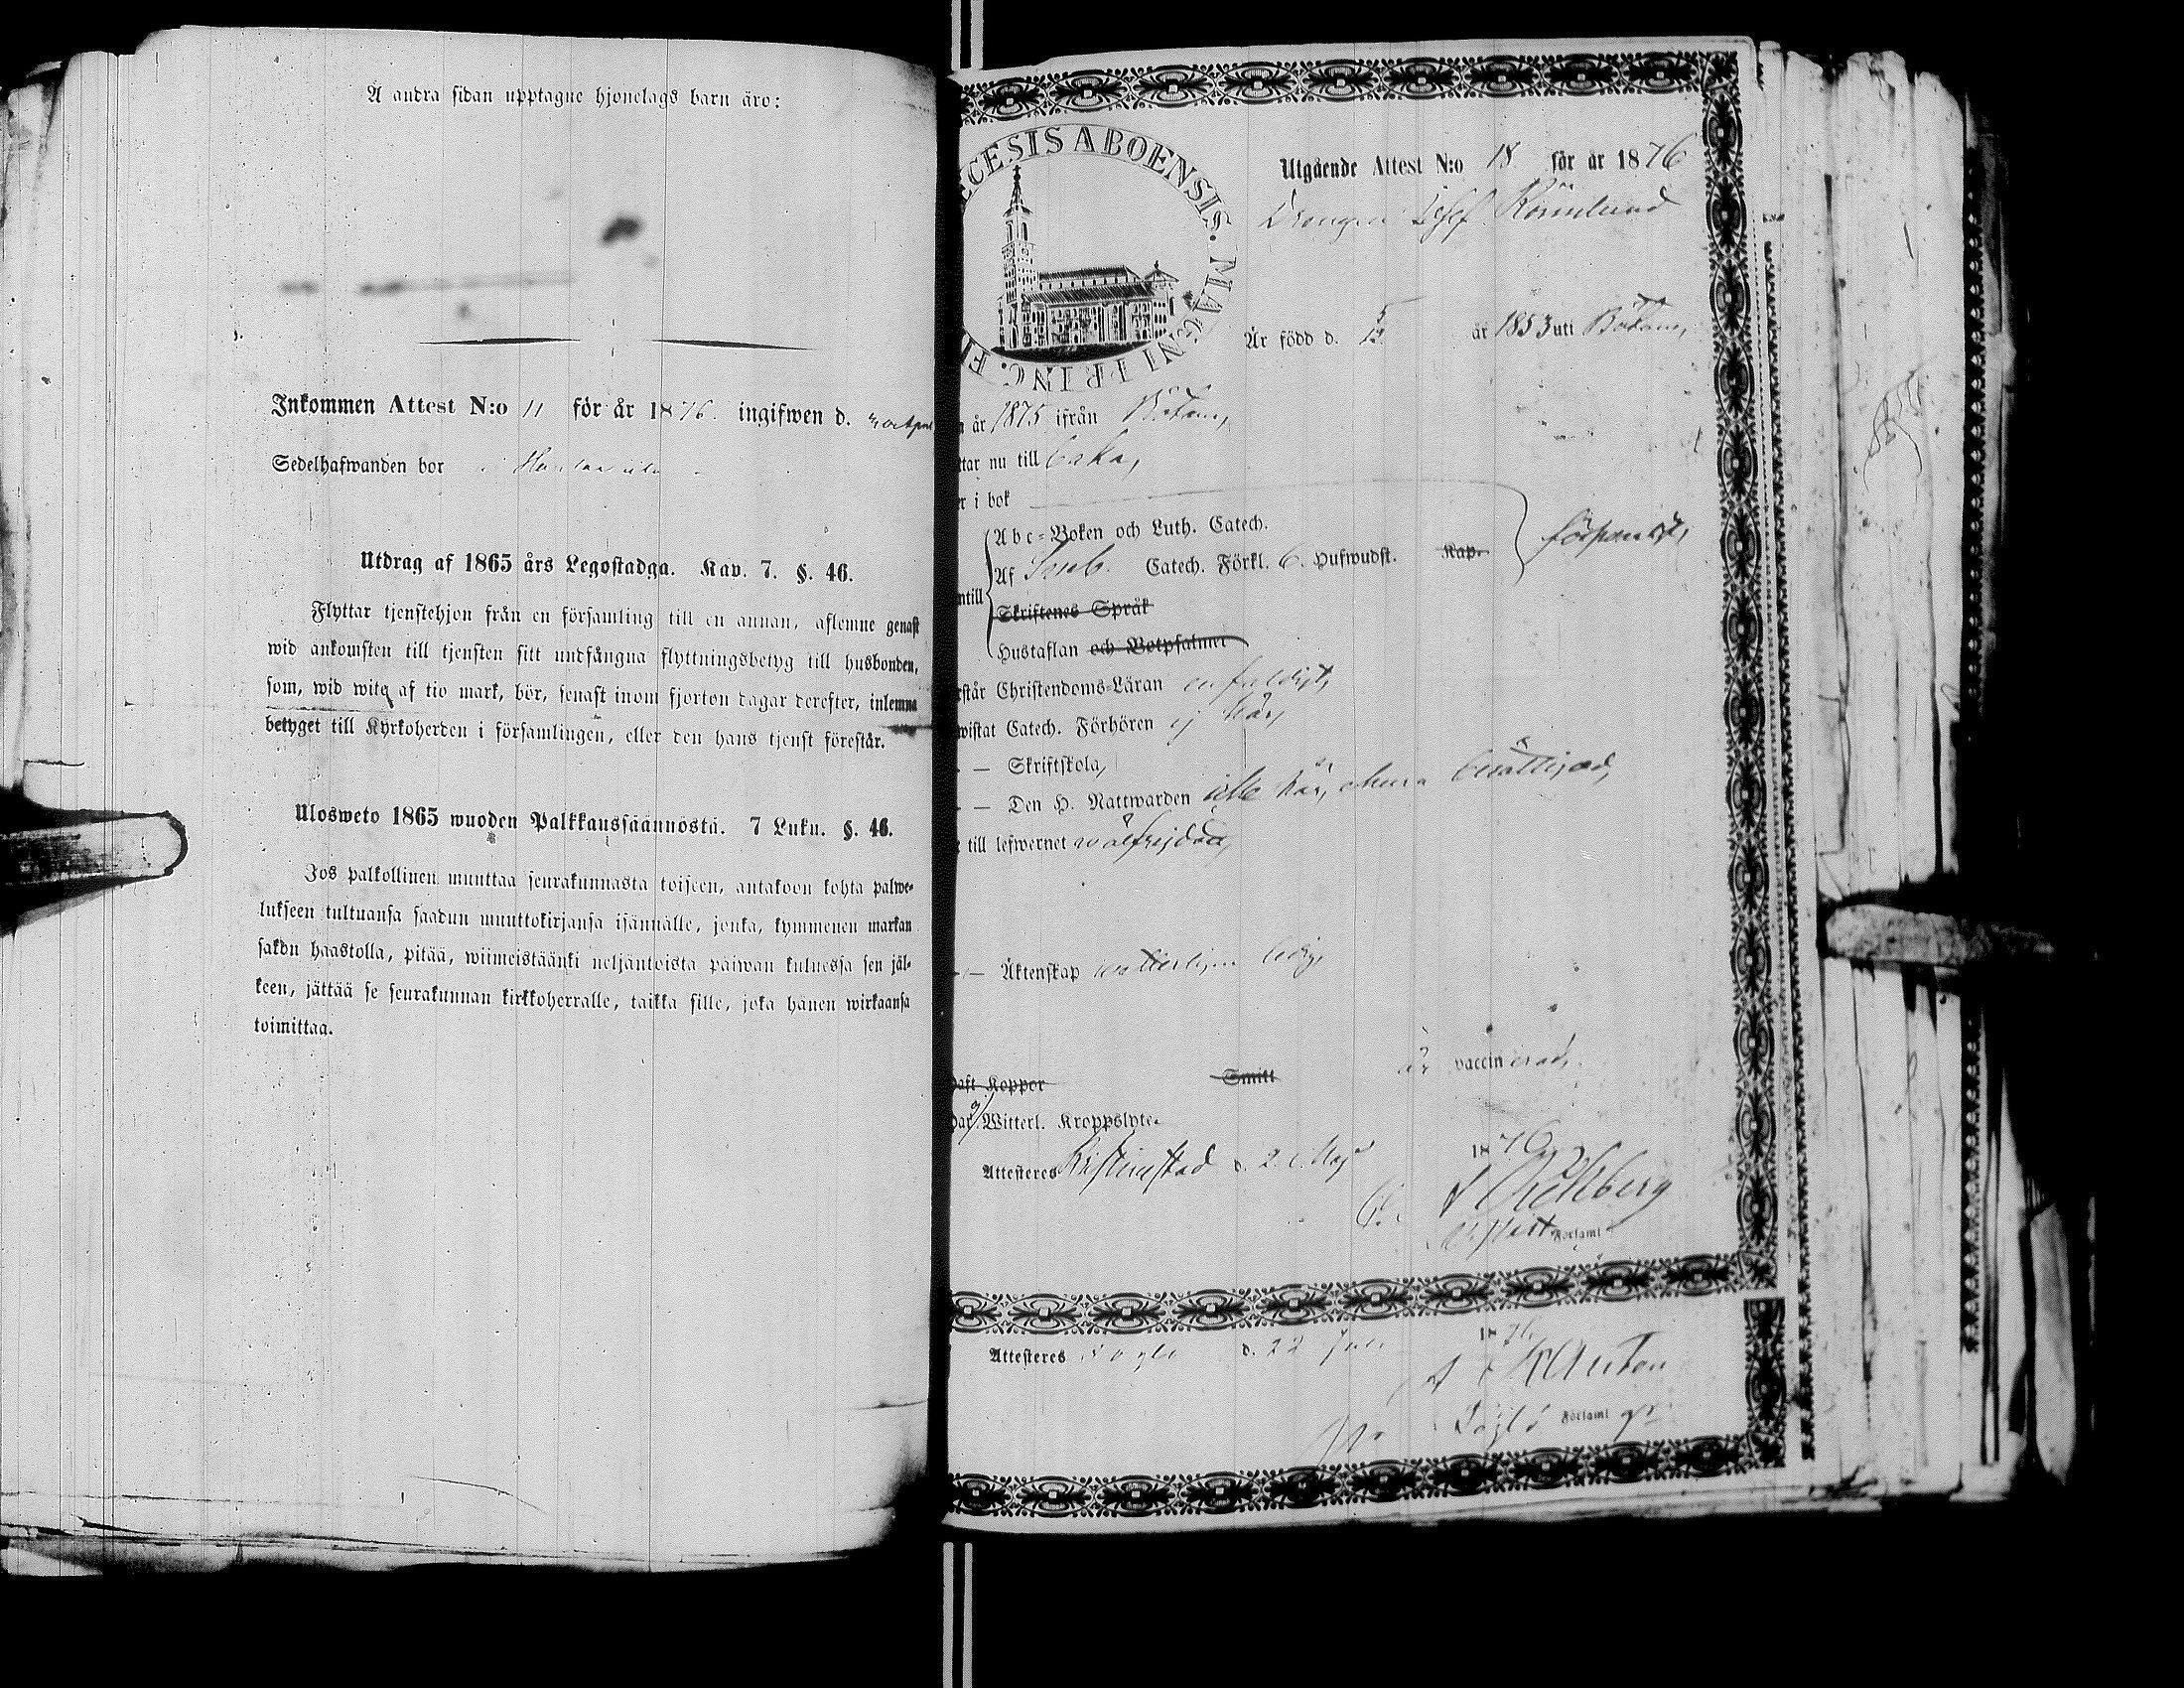 Å andra sidan upptagne hjonelags barn äro:
Inkommen Attest N:o 11 för år 1876. ingifwen d.
Sedelhafwanden bor
Utdrag af 1865 års Legostadga. Kap. 7. §. 46.
Flyttar tjenstehjon från en församling till en annan, aflemne genast
wid ankomsten till tjensten sitt undfångna flyttningsbetyg till husbonden,
som, wid wite af tio mark, bör, senast inom fjorton dagar derefter, inlemna
betyget till Kyrkoherden i församlingen, eller den hans tjenst förestår.
Ulosweto 1865 wuoden Palkkaussäännöstä. 7 Luku. §. 46.
Jos palkollinen muuttaa seurakunnasta toiseen, antakoon kohta palwe-
lukseen tultuansa saadun muuttokirjansa isännälle, jonka, kymmenen markan
sakon haastolla, pitää, wiimeistäänki neljäntoista päiwän kuluessa sen jäl-
keen, jättää se seurakunnan kirkkoherralle, taikka sille, joka hänen wirkaansa
toimittaa.
ECESIS ABOENSIS. MAGNI PRINC. FI
Utgående Attest N:o 18 för år 1876
Drengen Josef Rönnlund
Är född d. 5/12 år 1853 uti Bötom,
n år 1875 ifrån Bötom,
ttar nu till
er i bok
Abc-Boken och Luth. Catech.
Af Sveb. Catech. Förkl. 6. Hufwudst. Kap.
försvarligt,
ntill
Skriftenes Språk
Hustaflan och Botpsalmer
rstår Christendoms-Läran enfaldigt,
wistat Catech. Förhören ej här,
- — Skriftskola,
- — Den H. Nattwarden icke här, men berättigad,
r till lefwernet wälfrejdad,
- — Äktenskap witterligen ledig,
haft Koppor Smitt är vaccinerad,
har ej Witterl. Kroppslyte.
Attesteres Kristinestad d. 2 Maj 1876
Förlaml
Attesteres Föglö d. 22 Juli 1876
Föglö Förlaml